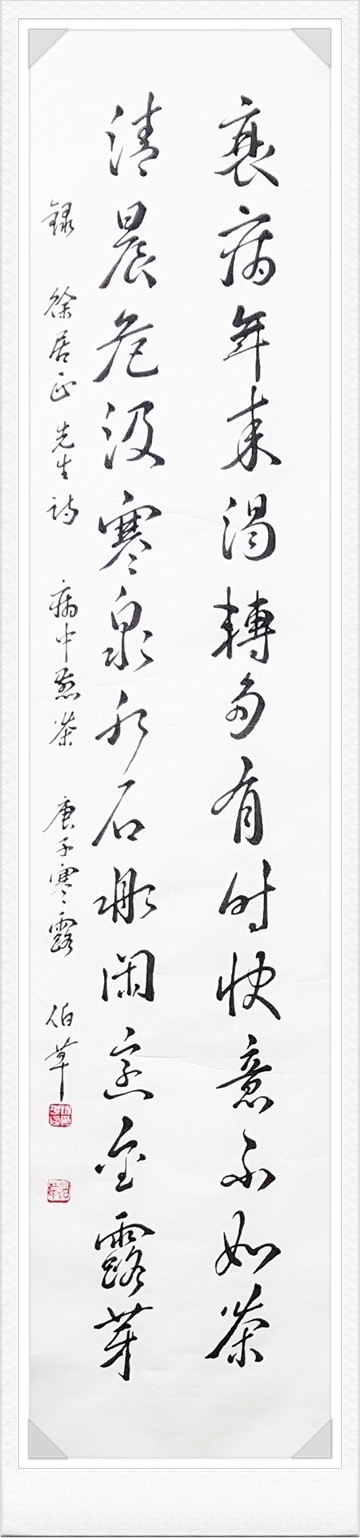 衰病年来渴轉多有时快意不如茶
清晨爲汲寒泉水石鼎閑烹金露芽
録 徐居正先生詩 病中煎茶 庚子寒露 伯草